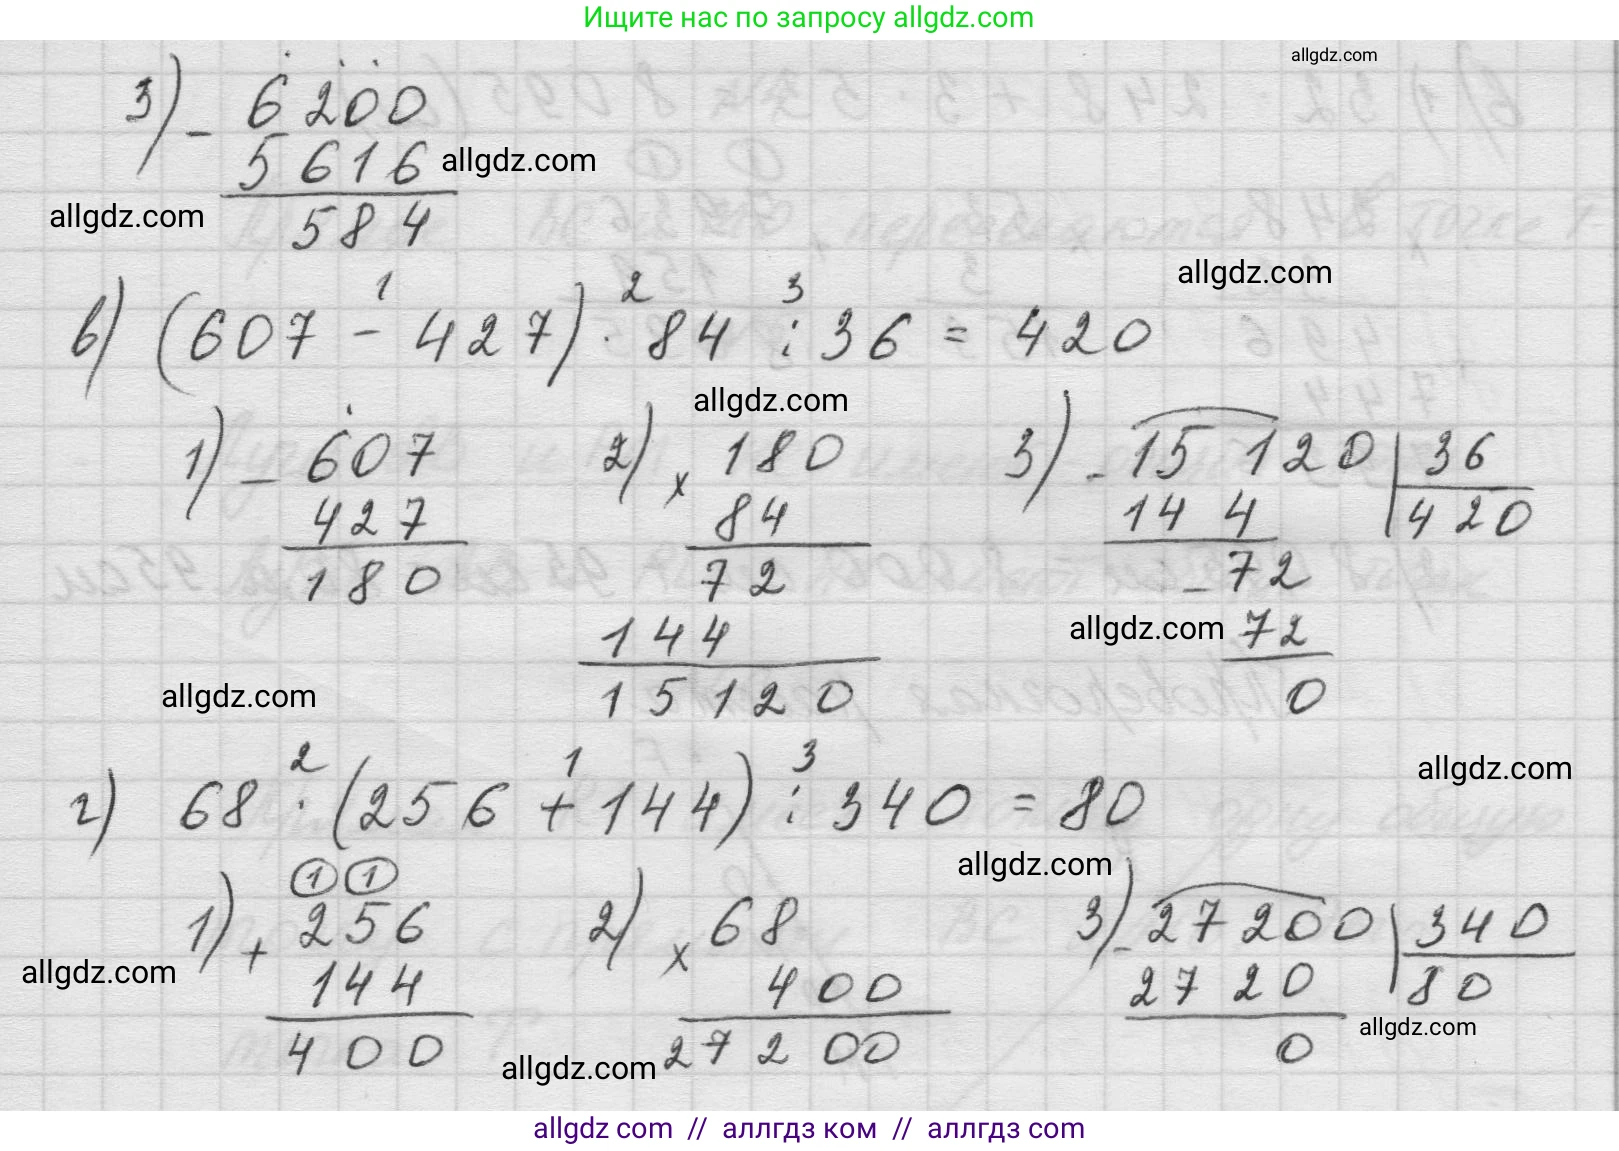 Ищите нас по запросу allgdz.com
allgdz.com
3) - 6200
5616 allgdz.com
allgdz.com
584
allgdz.com
в) (607 - 427) · 84 : 36 = 420
1 2 3
allgdz.com
1) - 607
427
180
2) x 180
84
72
144
15120
3) - 15120 | 36
144 420
- 72
allgdz.com 72
0
allgdz.com
allgdz.com
г) 68 · (256 + 144) : 340 = 80
2 1 3
allgdz.com
1 1
1) + 256
144
400
allgdz.com
2) x 68
400
27200
allgdz.com
3) - 27200 | 340
2720 80
0
allgdz.com
allgdz com // аллгдз ком // аллгдз com